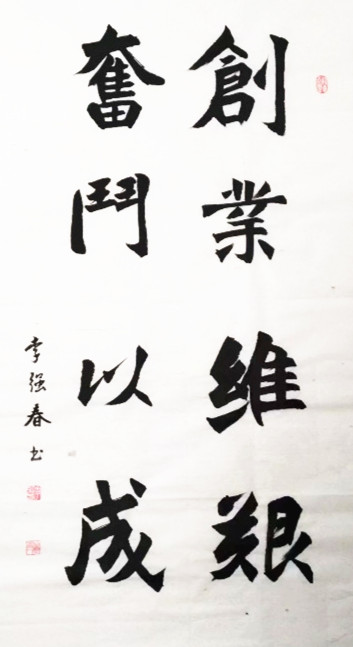 創業维艱
奮鬥以成
李强春书